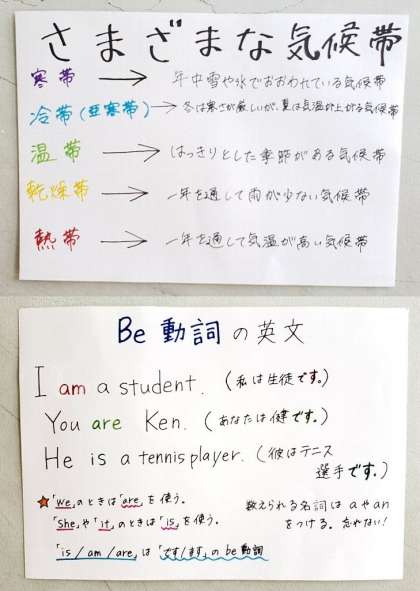 さまざまな気候帯
寒帯 → 年中雪や氷でおおわれている気候帯
冷帯(亜寒帯) → 冬は寒さが厳しいが、夏は気温が上がる気候帯
温帯 → はっきりとした季節がある気候帯
乾燥帯 → 一年を通して雨が少ない気候帯
熱帯 → 一年を通して気温が高い気候帯
Be 動詞の英文
I am a student. (私は生徒です。)
You are Ken. (あなたは健です。)
He is a tennis player. (彼はテニス
選手です。)
★「we」のときは「are」を使う。
「She」や「it」のときは「is」を使う。
「is / am / are」は「です/ます」のbe動詞
数えられる名詞は a や an
をつける。忘れない!